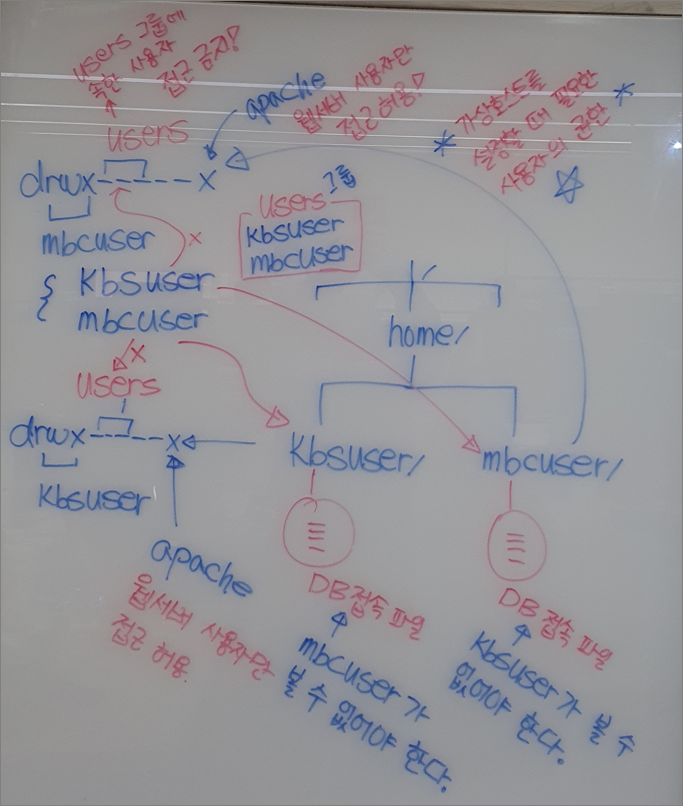 users 그룹에
속한 사용자
접근 금지!
users
apache
웹서버 사용자만
접근 허용!
* 가상호스트를 *
설정할 때 필요한
사용자의 권한 ☆
drwx------x
mbcuser
users 그룹
kbsuser
mbcuser
{ kbsuser
mbcuser
x
x
/
home/
users
drwx------x
kbsuser
kbsuser/
mbcuser/
apache
웹서버 사용자만
접근 허용.
DB접속 파일
mbcuser가
볼 수 없어야 한다.
DB 접속 파일
kbsuser가 볼 수
없어야 한다.